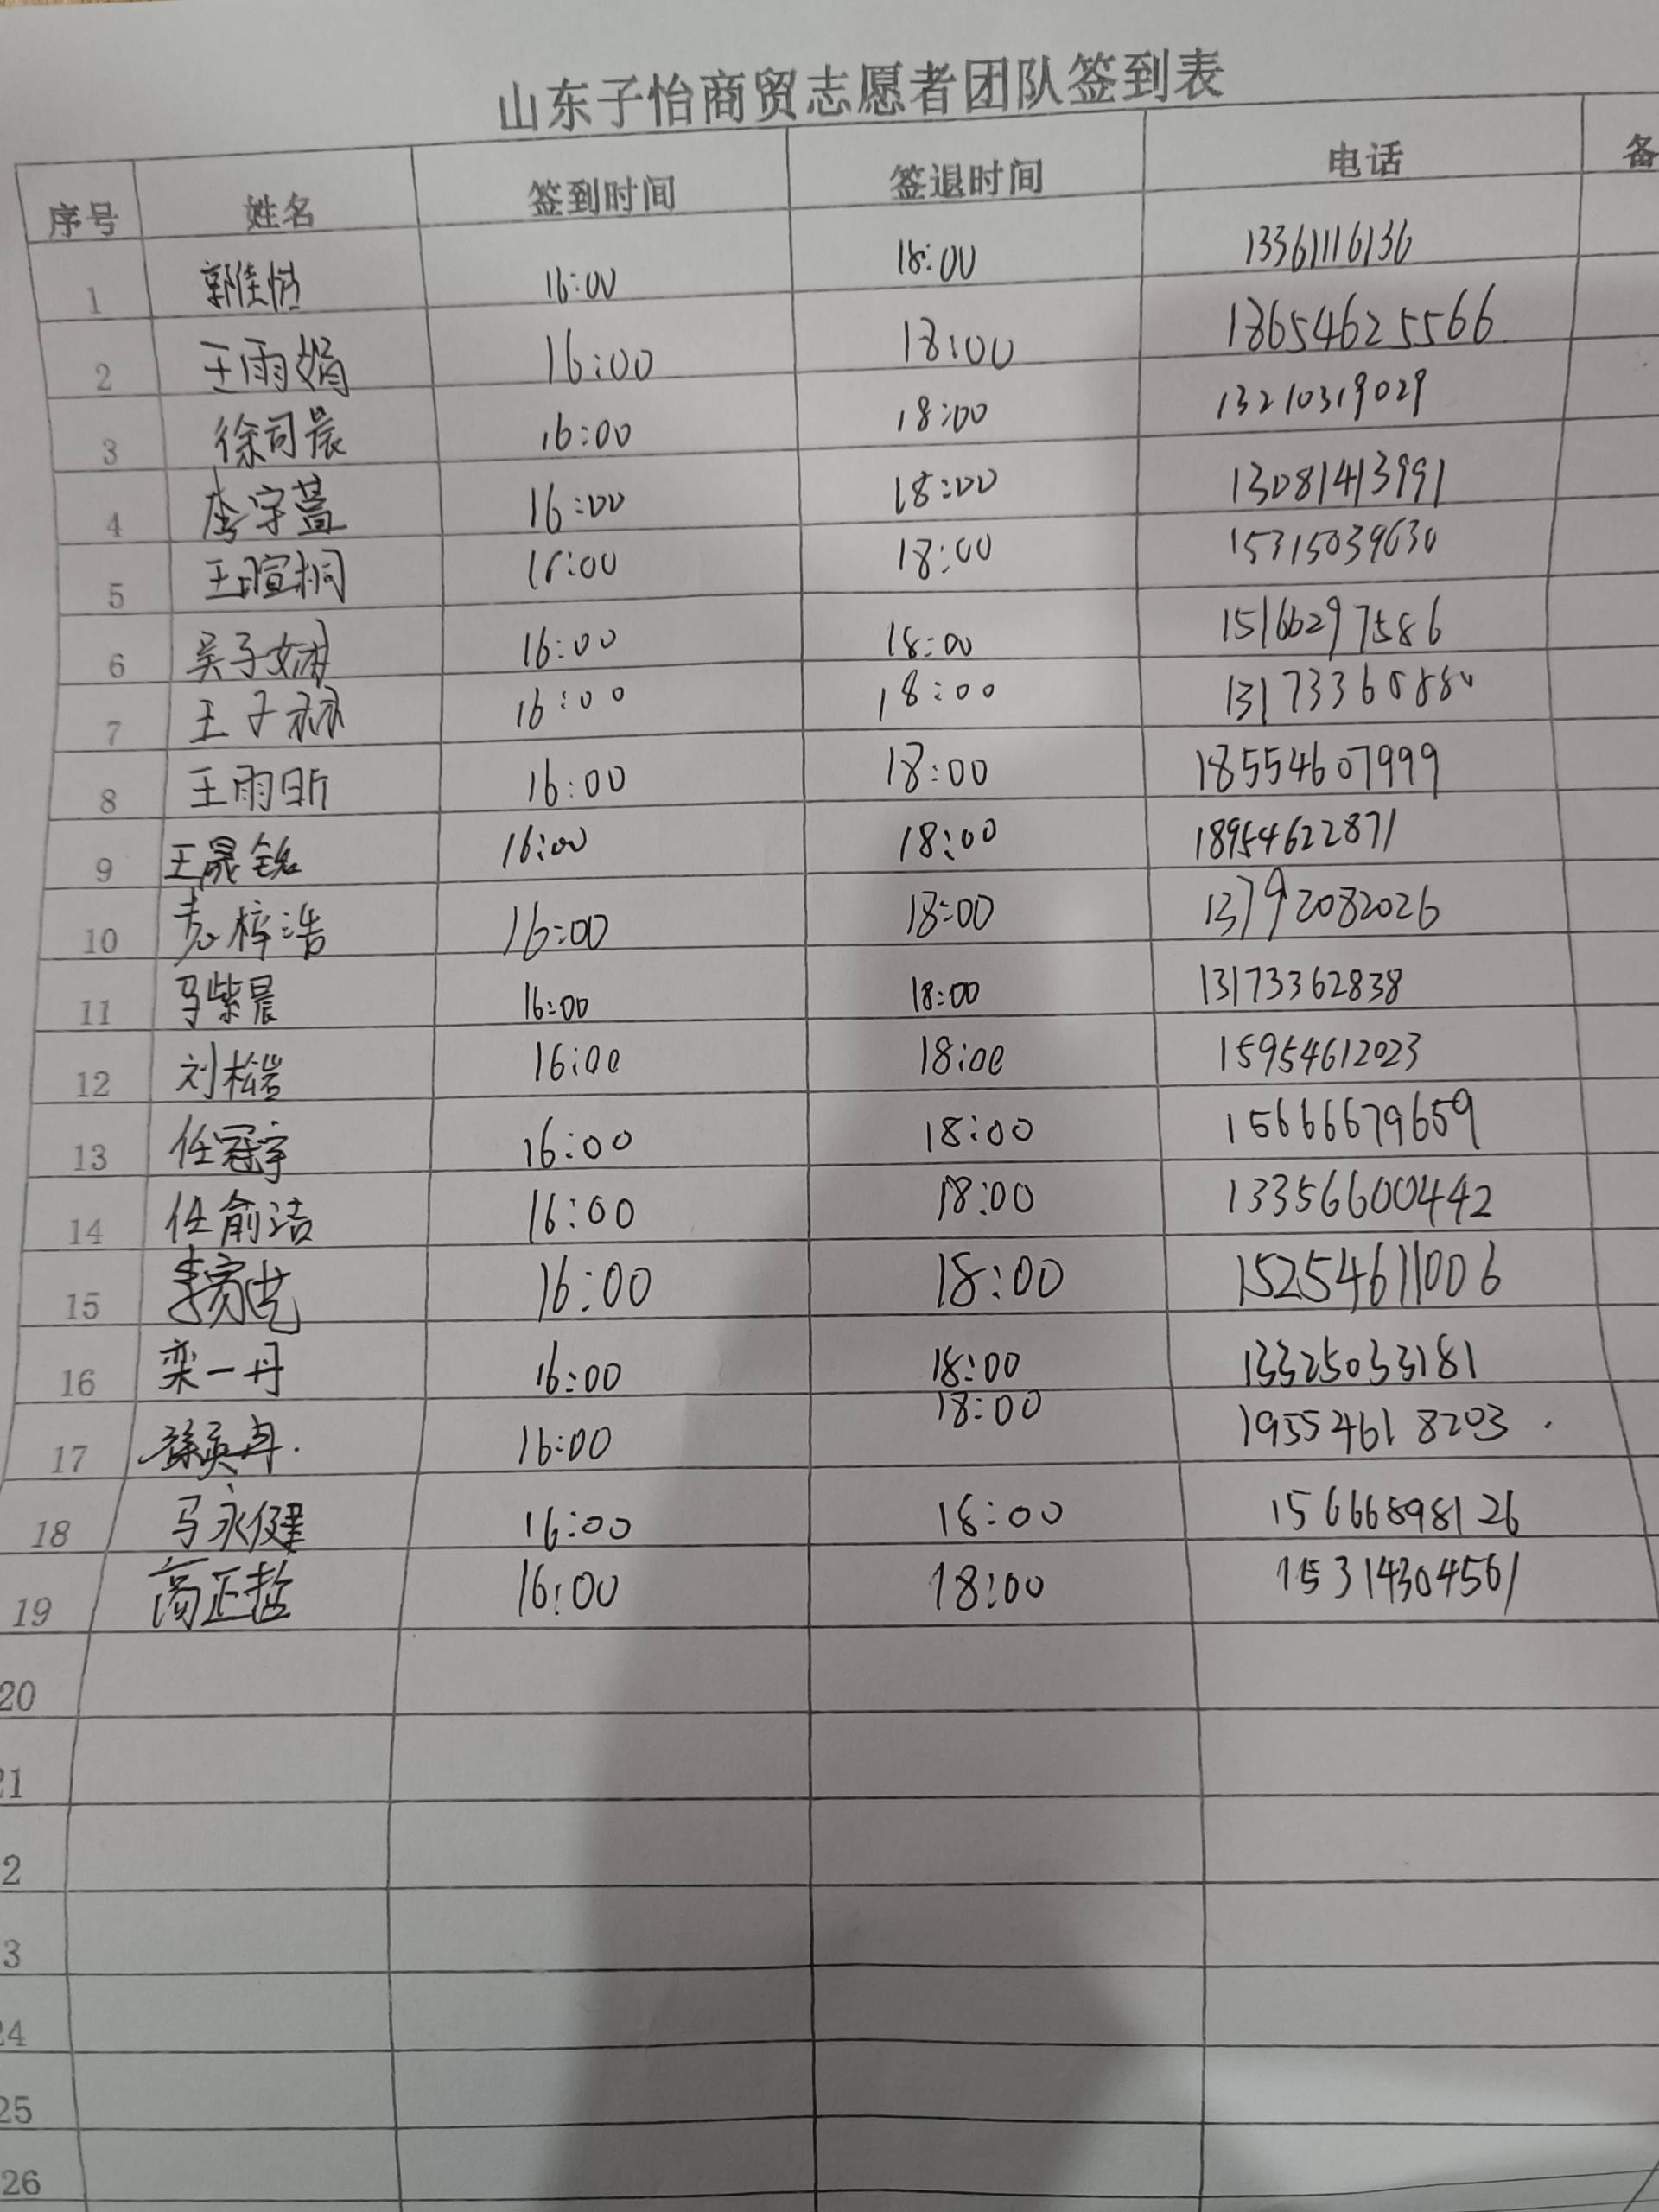 山东子怡商贸志愿者团队签到表
序号 姓名 签到时间 签退时间 电话 备
1 郭佳怡 16:00 18:00 13361116136
2 王雨娟 16:00 18:00 18654625566
3 徐司晨 16:00 18:00 13210319029
4 李宇萱 16:00 18:00 13081413991
5 王暄桐 16:00 18:00 15315039630
6 吴子 16:00 18:00 15166297586
7 王子 16:00 18:00
8 王雨昕 16:00 18:00 18554607999
9 王晟铭 16:00 18:00 18954622871
10 梓浩 16:00 18:00 13792082026
11 马紫晨 16:00 18:00 13173362838
12 刘松岩 16:00 18:00 15954612023
13 任冠宇 16:00 18:00 15666679659
14 任俞洁 16:00 18:00 13356600442
15 李 16:00 18:00 15254611006
16 栾一丹 16:00 18:00 13325033181
17 16:00 18:00 19554618203
18 马永健 16:00 18:00 15666898126
19 高正哲 16:00 18:00 15314304561
20
21
2
3
24
25
26